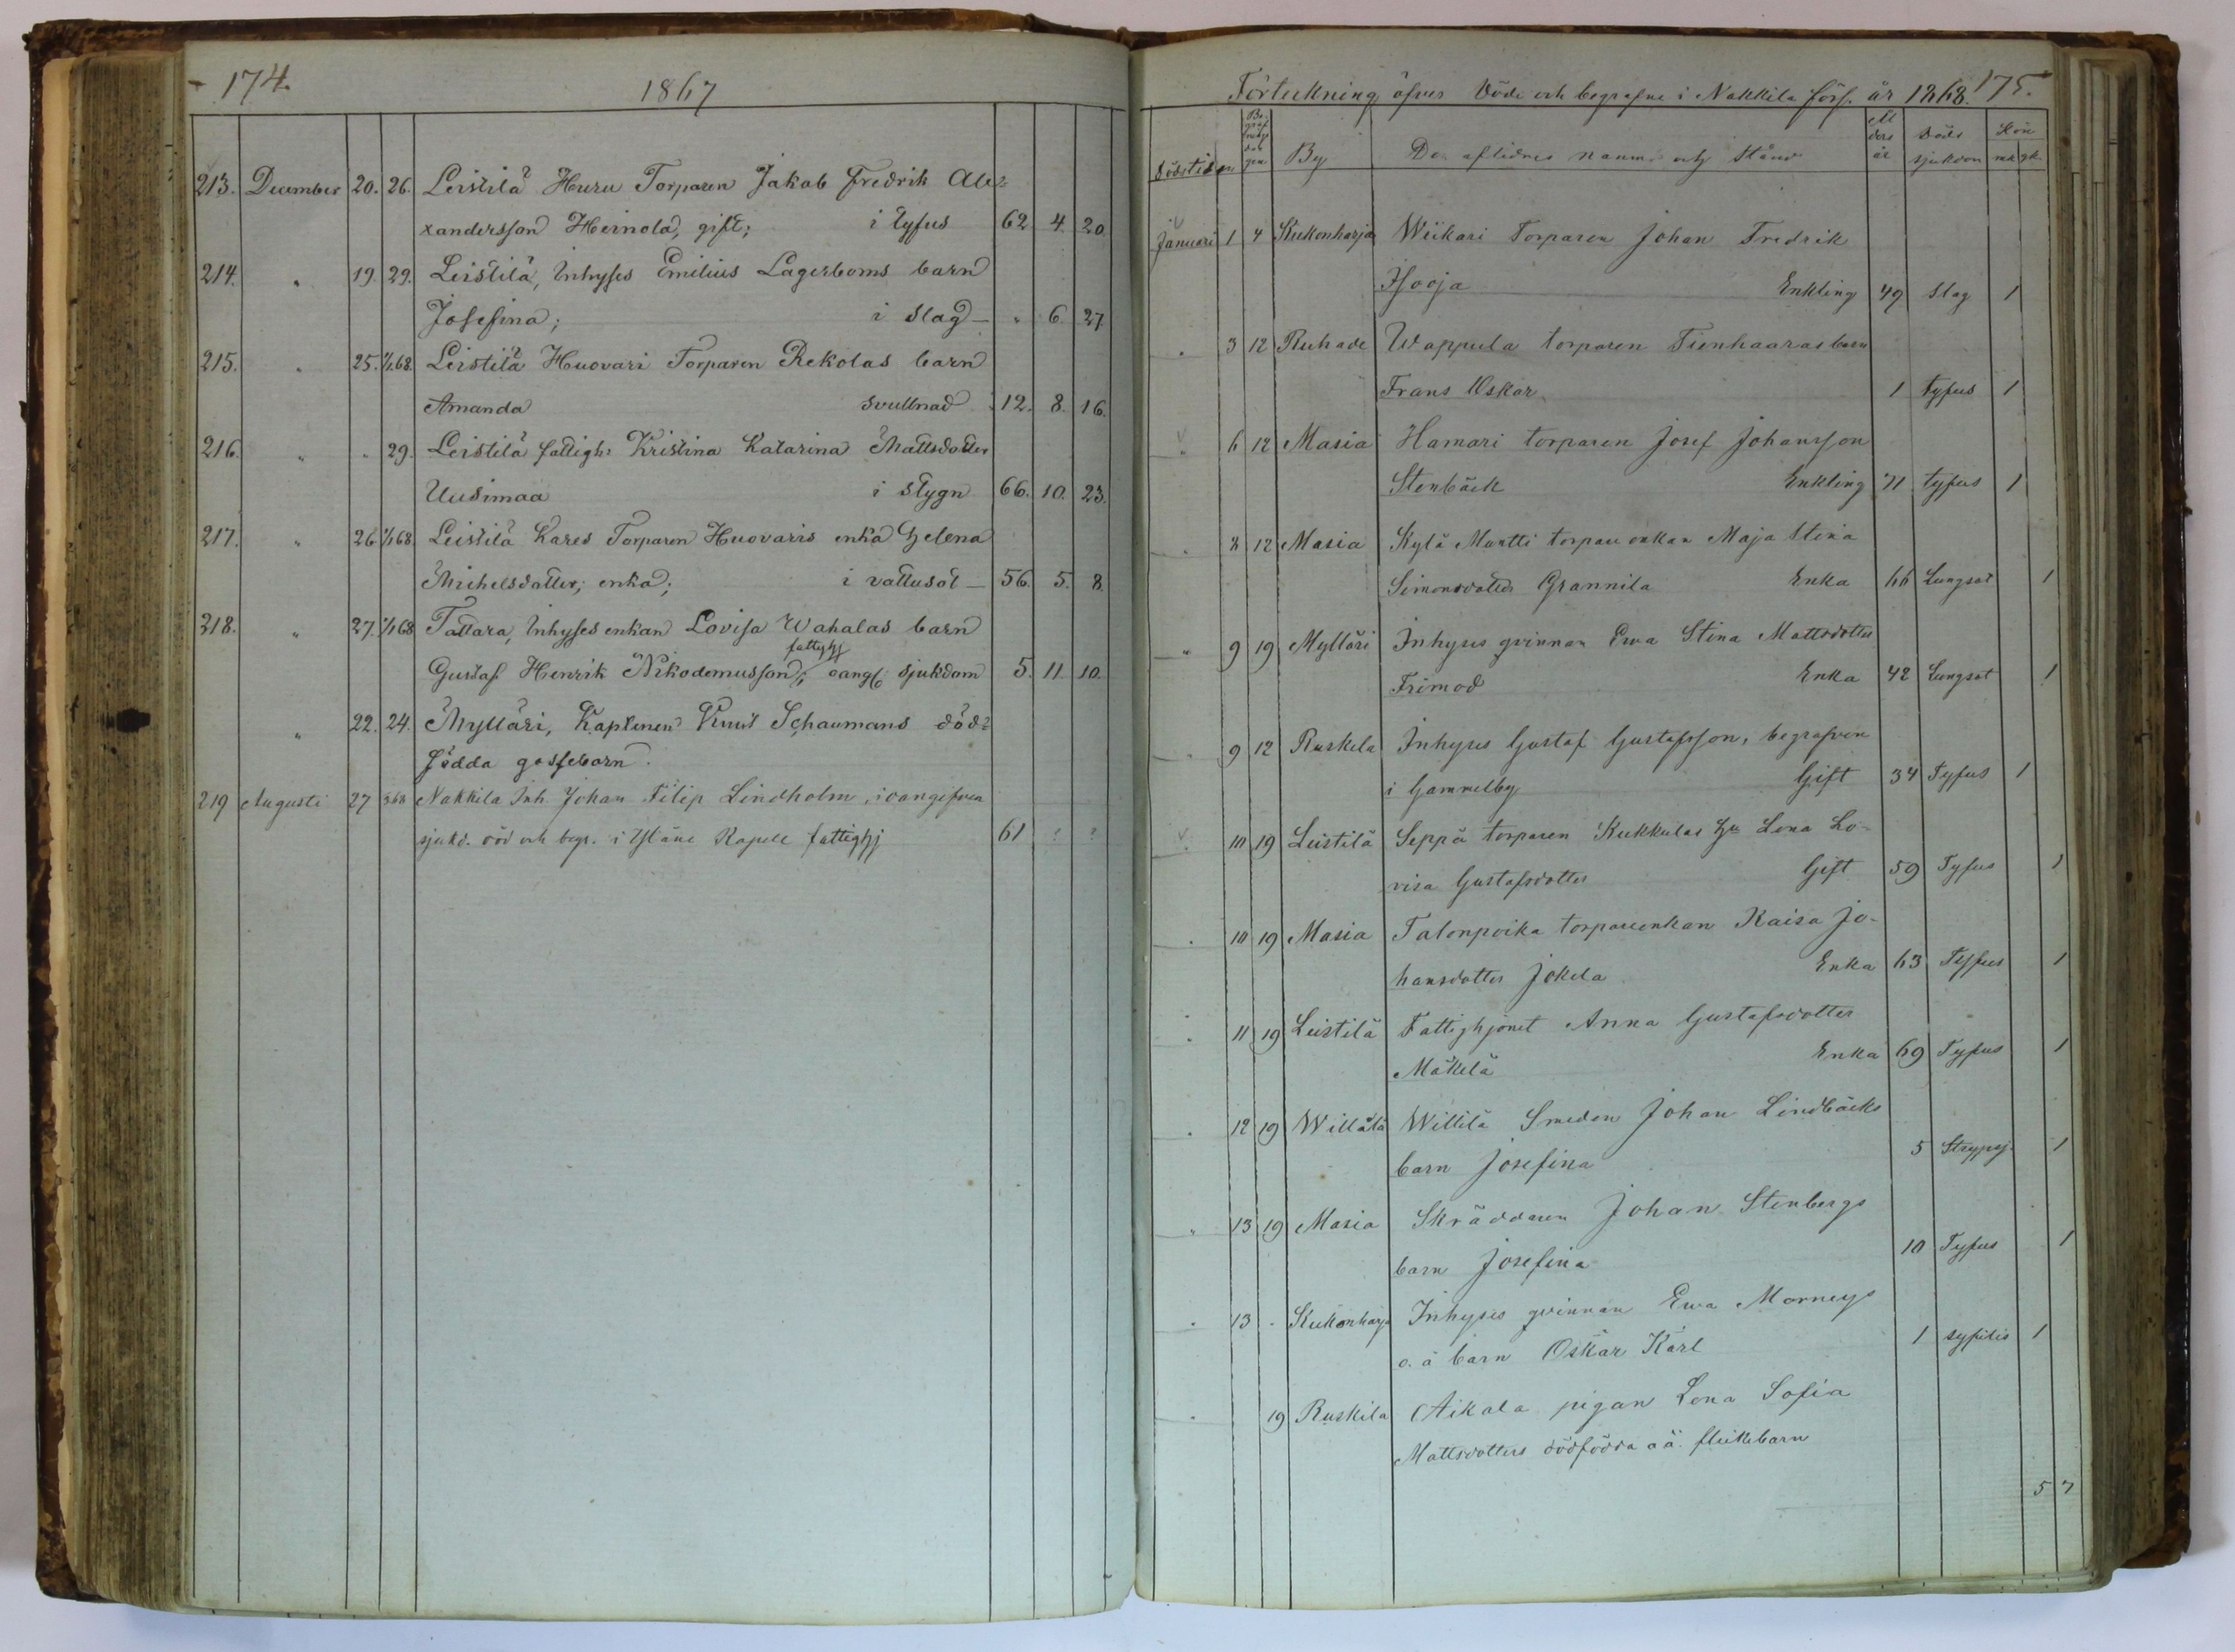 174.
1867
213. December 20. 26. Leistilä Huru Torparen Jakob Fredrik Ale=
xandersson Heinola, gift; i tyfus 62 4. 20
214. " 19. 29. Leistilä, Inhyses Emilius Lagerboms barn
Josefina; i slag — " 6. 27.
215. " 25. 1/1.68. Leistilä Huovari Torparen Rekolas barn
Amanda svullnad 12. 8. 16.
216. " " 29. Leistilä fattigh: Kristina Katarina Mattsdotter
Uusimaa i stygn 66. 10. 23.
217. " 26. 1/1 68 Leistilä Kares Torparen Huovaris enka Helena
Michelsdotter, enka; i vattusot — 56. 5. 8.
218. " 27. 1/1 68 Tattara, Inhyses enkan Lovisa Wahalas barn
fattighj
Gustaf Henrik Nikodemusson; oangf sjukdom 5. 11 10.
" 22. 24. Mylläri, Kaptenen Knut Schaumans död=
födda gossebarn.
219 Augusti 27 Nakkila Inh Johan Filip Lindholm, i oangifven
sjukd. död och begr. i Kapell fattighj 61 ? ?
Förteckning öfver Döde och begrafne i Nakkila förs. år 1868. 175.
Dödstiden Begrafningsdagen By De aflidnes namn och stånd Ålders år Döds sjukdom Kön mk qk.
Januari 1 4 Kukonharja Wiikari Torparen Johan Fredrik
Isooja Enkling 49 slag 1
" 3 12 Ruhade Wappula torparen Tienhaaras barn
Frans Oskar 1 tyfus 1
" 6 12 Masia Hamari torparen Josef Johansson
Stenbäck Enkling 71 tyfus 1
" 8 12 Masia Kylä Muntti torpare enkan Maja Stina
Simonsdotter Grannila Enka 66 Lungsot 1
" 9 19 Mylläri Inhyses qvinnan Ewa Stina Mattsdotter
Frimod Enka 42 Lungsot 1
" 9 12 Ruskela Inhyses Gustaf Gustafsson, begrafven
i Gammelby Gift 34 Tyfus 1
" 10 19 Leistilä Seppä torparen Kukkulas Hu Lena Lo-
visa Gustafsdotter Gift 59 Tyfus 1
" 10 19 Masia Talonpoika torpareenkan Kaisa Jo-
hansdotter Jokela Enka 63 Tyfus 1
" 11 19 Leistilä Fattighjonet Anna Gustafsdotter
Mäkelä Enka 69 Tyfus 1
" 12 19 Willilä Willilä Smeden Johan Lindbäcks
barn Josefina 5 Strypsj. 1
" 13 19 Masia Skräddaren Johan Stenbergs
barn Josefina 10 Tyfus 1
" 13 " Kukonharja Inhyses qvinnan Ewa Morneys
o. ä barn Oskar Karl 1 syfilis 1
" 19 Ruskila Aikala pigan Lena Sofia
Mattsdotters dödfödda o ä. flickebarn
5 7